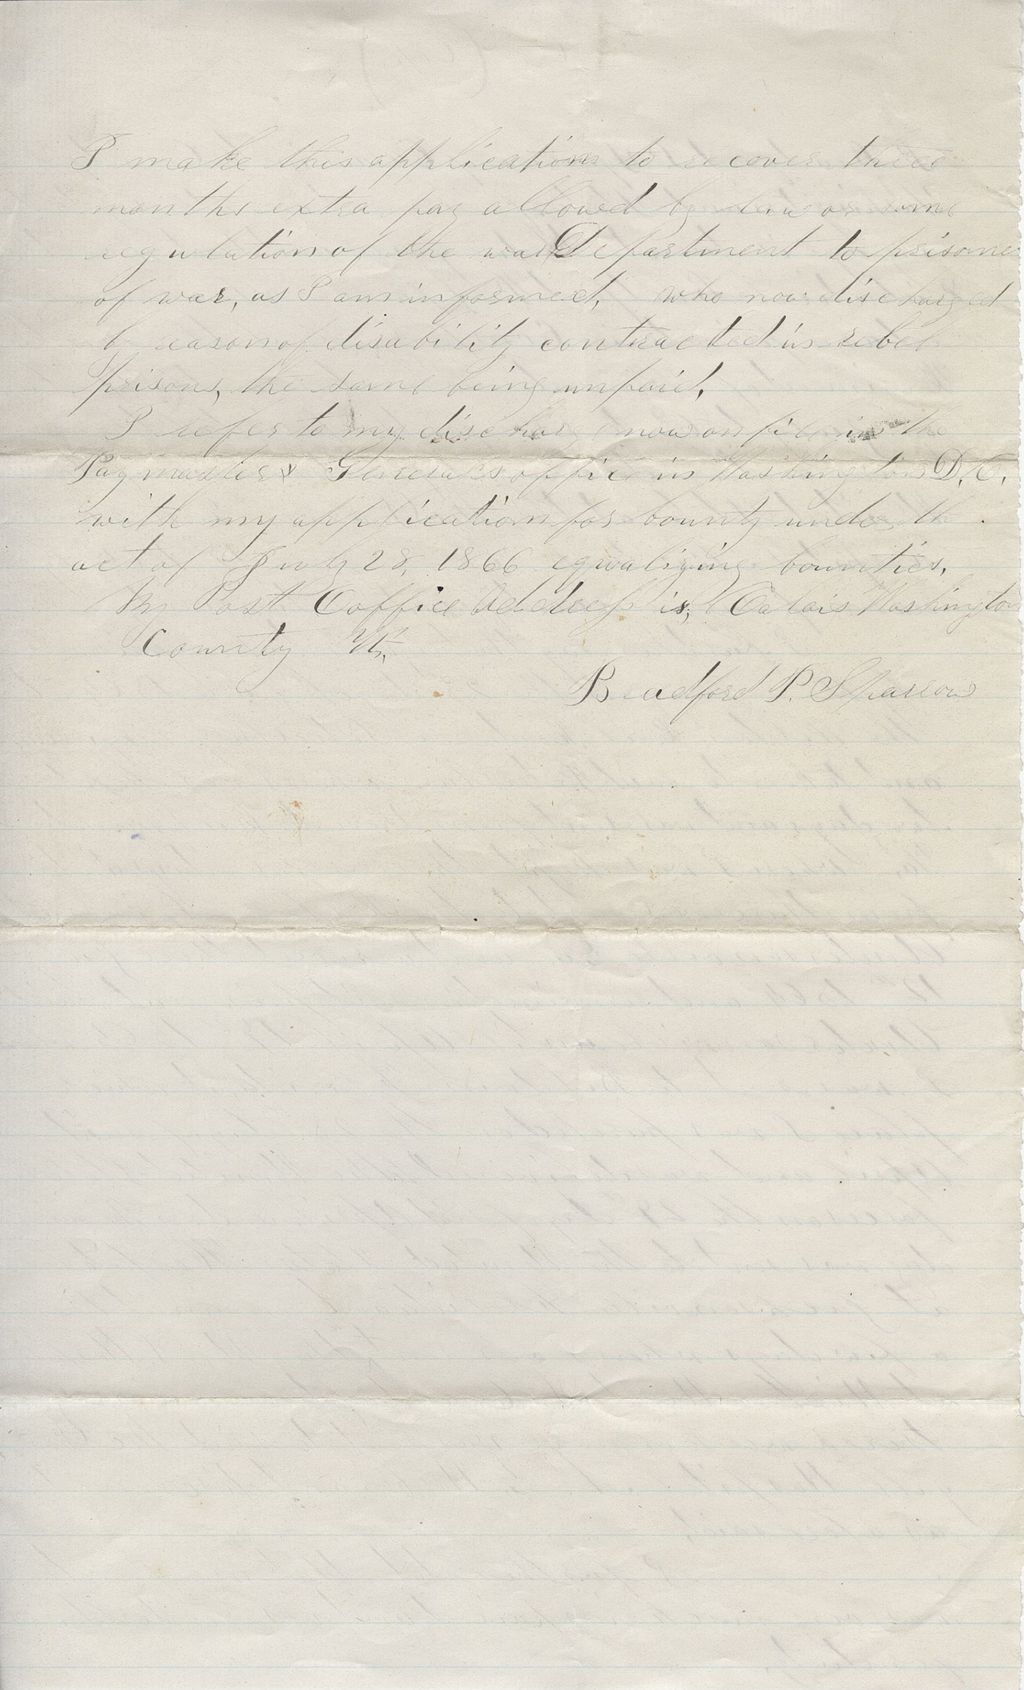 I make this application to recover three
months extra pay allowed by law or some
regulation of the war Department to prisoners
of war, as I am informed, who now discharged
by reason of disability contracted in rebel
prisons, the same being unpaid.
I refer to my discharge now on file in the
Paymaster Generals office in Washington D.C.
with my application for bounty under the
act of July 28, 1866 equalizing bounties.
My Post Office Address is, Calais Washington
County Vt.
Bradford P. Sparrow